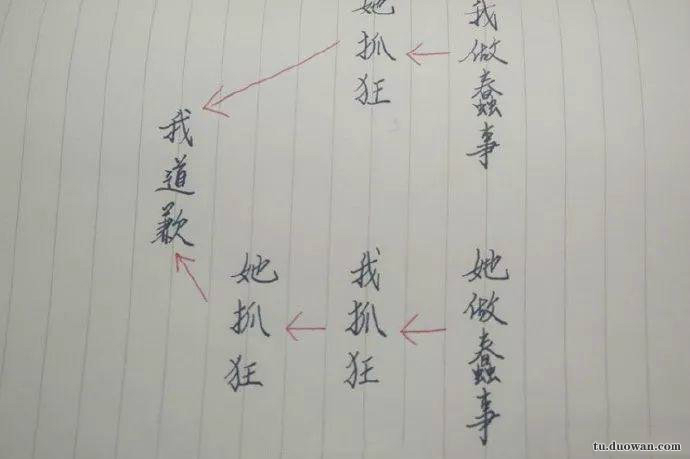 我做蠢事
她抓狂
我道歉
她做蠢事
我抓狂
她抓狂
tu.duowan.com